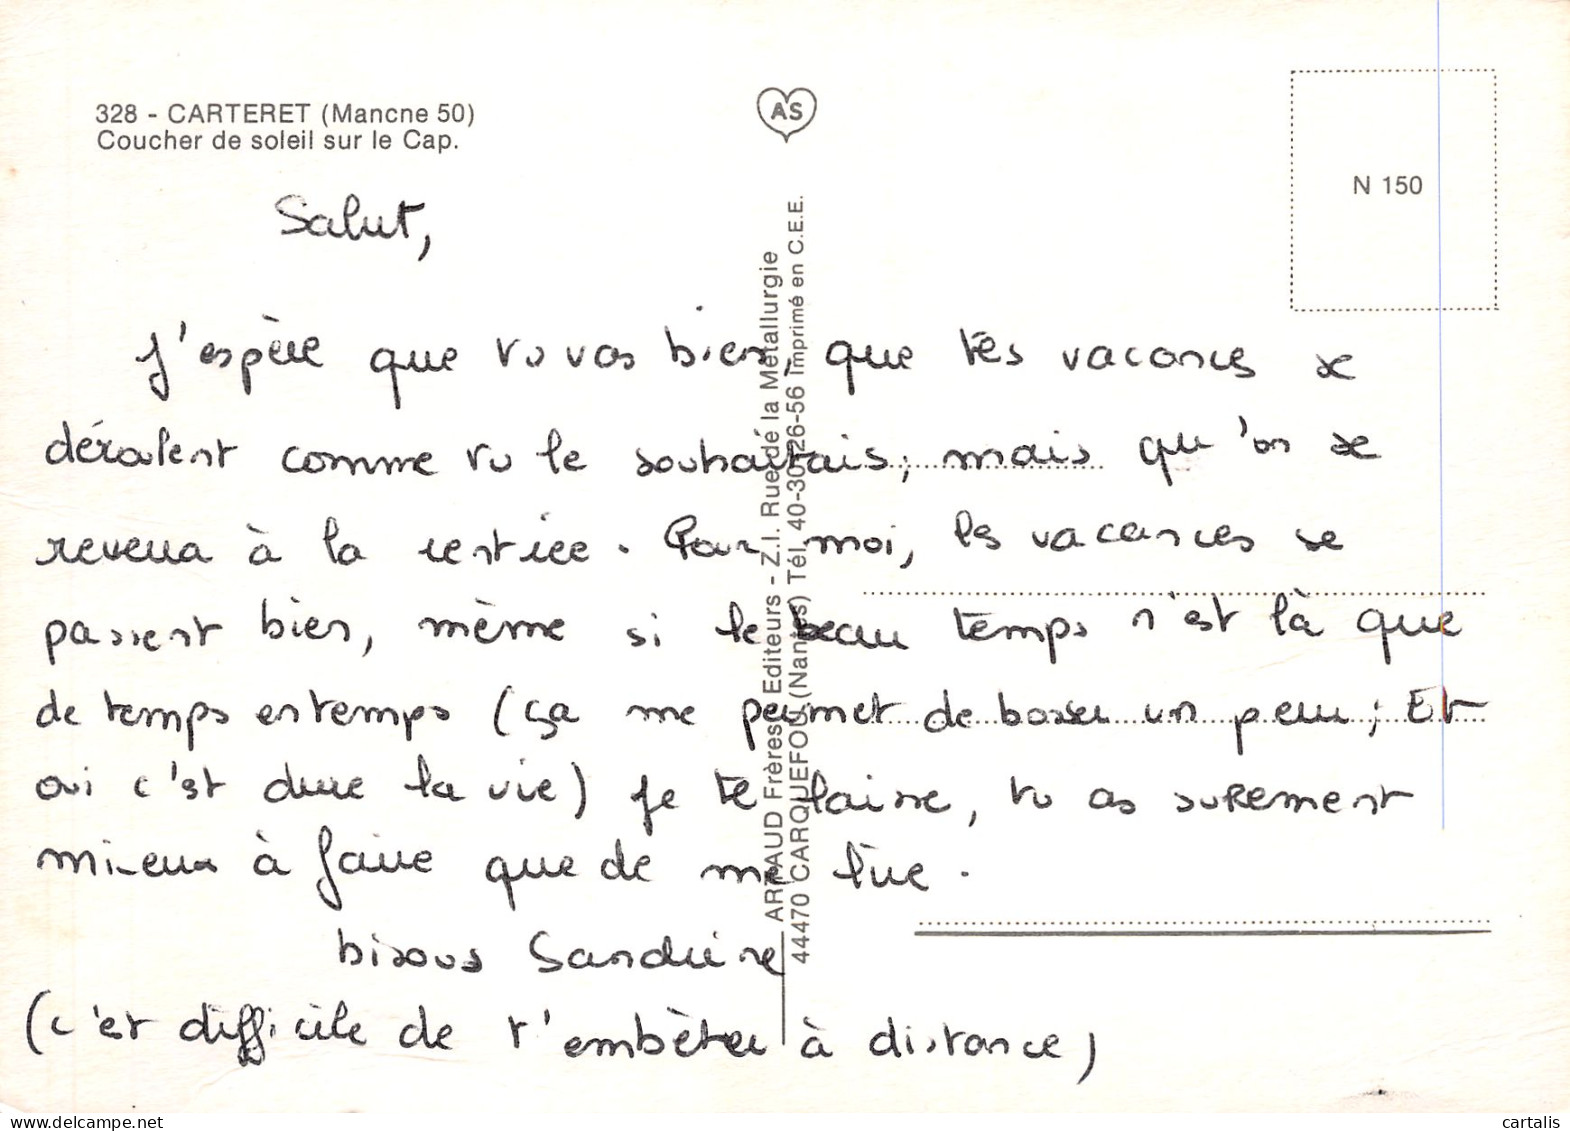 328 - CARTERET (Mancne 50)
Coucher de soleil sur le Cap.
AS
N 150
Salut,
J'espère que tu vas bien, que tes vacances se
déroulent comme tu le souhaitais, mais qu'on se
reverra à la rentrée. Pour moi, les vacances se
passent bien, même si le beau temps n'est là que
de temps en temps (ça me permet de bosser un peu ; Et
oui c'est dure la vie) je te laisse, tu as surement
mieux à faire que de me lire.
bisous Sandrine
(c'est difficile de t'embêter à distance)
ARTAUD Frères Editeurs - Z.I. Rue de la Métallurgie
44470 CARQUEFOU (Nantes) Tél. 40-30-26-56 Imprimé en C.E.E.
cartalis